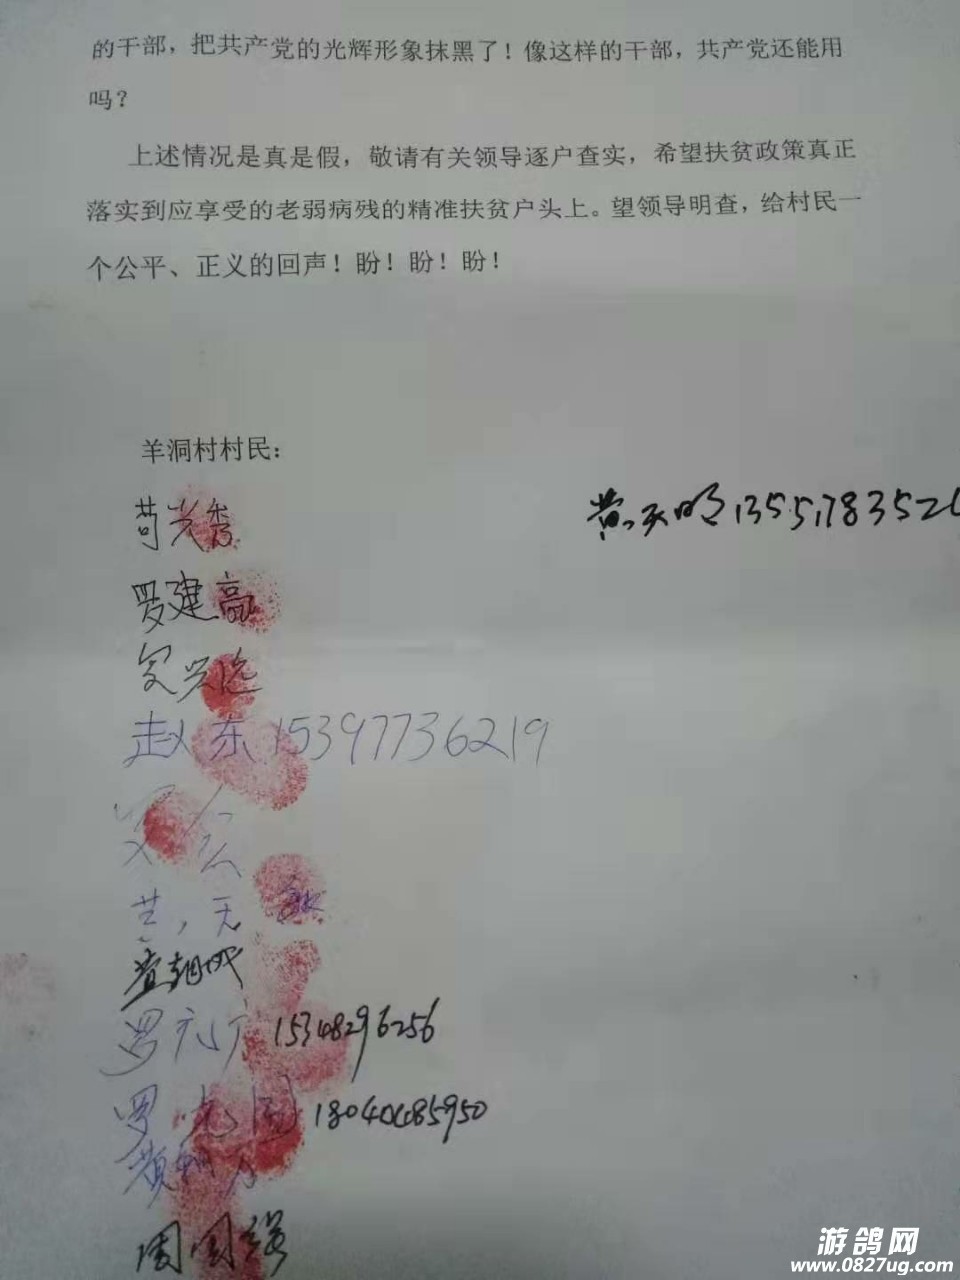 的干部，把共产党的光辉形象抹黑了！像这样的干部，共产党还能用
吗？
上述情况是真是假，敬请有关领导逐户查实，希望扶贫政策真正
落实到应享受的老弱病残的精准扶贫户头上。望领导明查，给村民一
个公平、正义的回声！盼！盼！盼！
羊洞村村民：
苟兴秀
黄天明13551783520
罗建高
赵东15397736219
罗元广15348296256
罗光国18040485950
周国强
游鸽网
www.0827ug.com